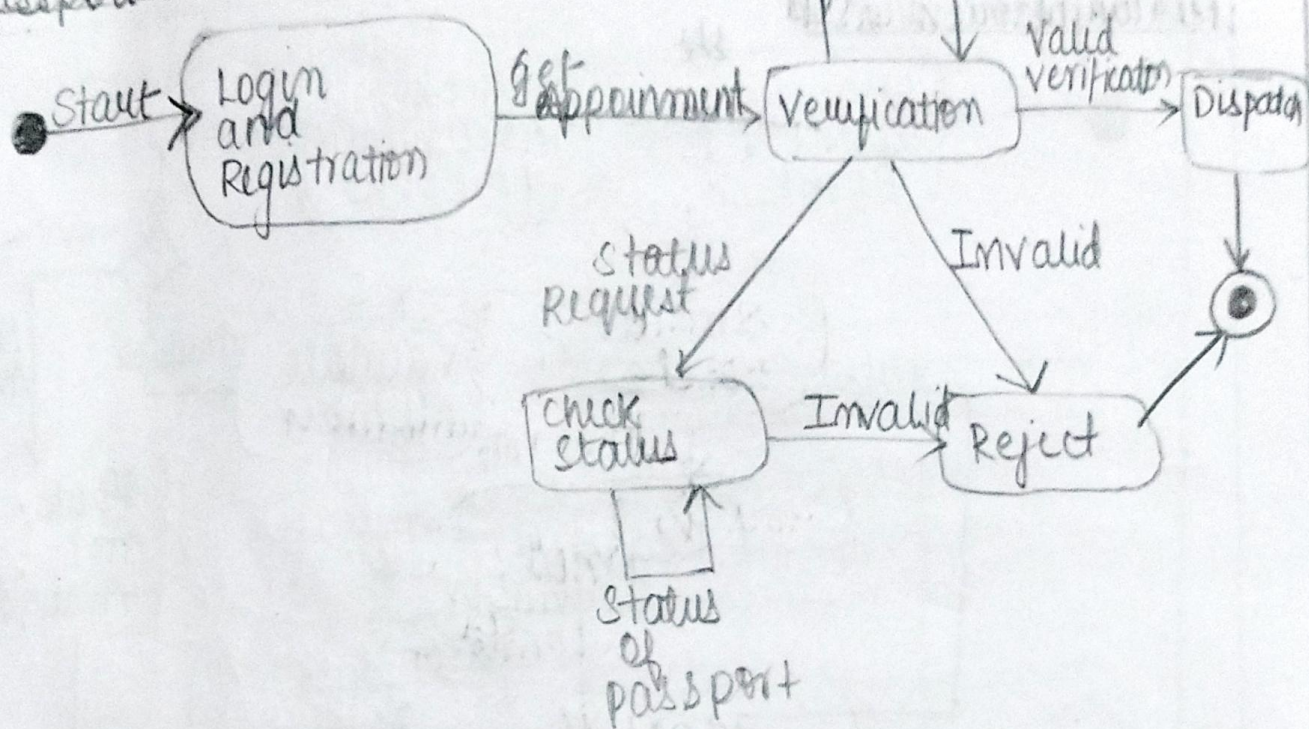 Start
Login
and
Registration
get
appoinment
Verification
Valid
verification
Dispatch
Status
Request
Invalid
Check
Status
Invalid
Reject
Status
of
passport